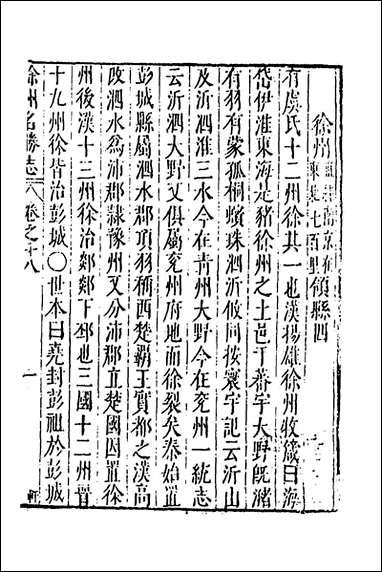 徐州
東走七百里領縣四
有虞氏十二州徐其一也漢揚雄徐州收箴曰海
岱伊淮東海是豬徐州之土邑于蕃宇大野旣瀦
有羽有蒙孤桐蠙珠泗沂攸同按寰宇記云沂山
及沂泗淮三水今在靑州大野今在兖州一統志
云沂泗大野又俱屬兖州府地而徐裂矣秦始置
彭城縣屬泗水郡項羽稱西楚霸王實都之漢高
改泗水爲沛郡隸豫州又分沛郡立楚國因置徐
州後漢十三州徐治郯郯下邳也三國十二州晉
十九州徐皆治彭城〇世本曰堯封彭祖於彭城
徐州名勝志 卷之十八
一